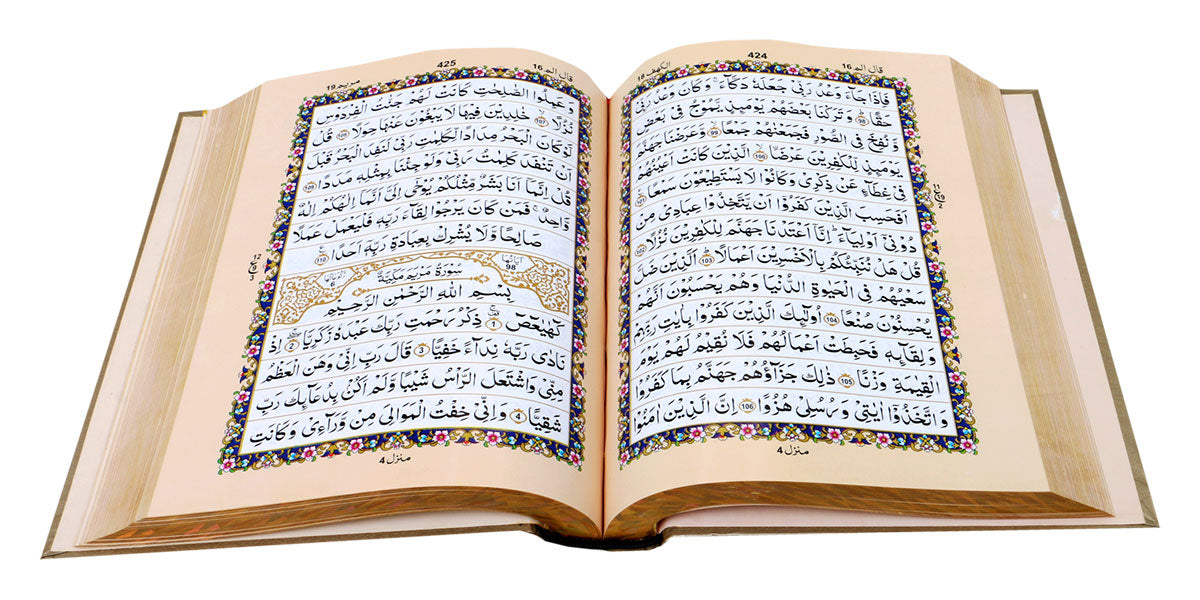 424
الكهف 18
قال الم 16
فَاِذَا جَآءَ وَعْدُ رَبِّیْ جَعَلَهٗ دَكَّآءَ ۚ وَكَانَ وَعْدُ رَبِّیْ
حَقًّا ؕ 98 وَتَرَكْنَا بَعْضَهُمْ یَوْمَىِٕذٍ یَّمُوْجُ فِیْ بَعْضٍ
وَّ نُفِخَ فِی الصُّوْرِ فَجَمَعْنٰهُمْ جَمْعًا ۙ 99 وَّعَرَضْنَا جَهَنَّمَ
یَوْمَىِٕذٍ لِّلْكٰفِرِیْنَ عَرْضَا ۙ 100 الَّذِیْنَ كَانَتْ اَعْیُنُهُمْ
فِیْ غِطَآءٍ عَنْ ذِكْرِیْ وَكَانُوْا لَا یَسْتَطِیْعُوْنَ سَمْعًا 101
اَفَحَسِبَ الَّذِیْنَ كَفَرُوْۤا اَنْ یَّتَّخِذُوْا عِبَادِیْ مِنْ
دُوْنِیْۤ اَوْلِیَآءَ ؕ اِنَّاۤ اَعْتَدْنَا جَهَنَّمَ لِلْكٰفِرِیْنَ نُزُلًا 102
قُلْ هَلْ نُنَبِّئُكُمْ بِالْاَخْسَرِیْنَ اَعْمَالًا ؕ 103 اَلَّذِیْنَ ضَلَّ
سَعْیُهُمْ فِی الْحَیٰوةِ الدُّنْیَا وَهُمْ یَحْسَبُوْنَ اَنَّهُمْ
یُحْسِنُوْنَ صُنْعًا 104 اُولٰٓىِٕكَ الَّذِیْنَ كَفَرُوْا بِاٰیٰتِ رَبِّهِمْ
وَ لِقَآىِٕهٖ فَحَبِطَتْ اَعْمَالُهُمْ فَلَا نُقِیْمُ لَهُمْ یَوْمَ
الْقِیٰمَةِ وَزْنًا 105 ذٰلِكَ جَزَآؤُهُمْ جَهَنَّمُ بِمَا كَفَرُوْا
وَ اتَّخَذُوْۤا اٰیٰتِیْ وَ رُسُلِیْ هُزُوًا 106 اِنَّ الَّذِیْنَ اٰمَنُوْا
منزل 4
425
مريم 19
قال الم 16
وَ عَمِلُوا الصّٰلِحٰتِ كَانَتْ لَهُمْ جَنّٰتُ الْفِرْدَوْسِ
نُزُلًا ۙ 107 خٰلِدِیْنَ فِیْهَا لَا یَبْغُوْنَ عَنْهَا حِوَلًا 108 قُلْ
لَّوْ كَانَ الْبَحْرُ مِدَادًا لِّكَلِمٰتِ رَبِّیْ لَنَفِدَ الْبَحْرُ قَبْلَ
اَنْ تَنْفَدَ كَلِمٰتُ رَبِّیْ وَلَوْ جِئْنَا بِمِثْلِهٖ مَدَدًا 109
قُلْ اِنَّمَاۤ اَنَا بَشَرٌ مِّثْلُكُمْ یُوْحٰۤی اِلَیَّ اَنَّمَاۤ اِلٰهُكُمْ اِلٰهٌ
وَّاحِدٌ ۚ فَمَنْ كَانَ یَرْجُوْا لِقَآءَ رَبِّهٖ فَلْیَعْمَلْ عَمَلًا
صَالِحًا وَّلَا یُشْرِكْ بِعِبَادَةِ رَبِّهٖۤ اَحَدًا 110
اٰیاتها 98
سُوْرَةُ مَرْیَمَ مَكِّیَّةٌ
بِسْمِ اللّٰهِ الرَّحْمٰنِ الرَّحِیْمِ
كٓهٰیٰعٓصٓ 1 ذِكْرُ رَحْمَتِ رَبِّكَ عَبْدَهٗ زَكَرِیَّا 2 اِذْ
نَادٰی رَبَّهٗ نِدَآءً خَفِیًّا 3 قَالَ رَبِّ اِنِّیْ وَهَنَ الْعَظْمُ
مِنِّیْ وَاشْتَعَلَ الرَّاْسُ شَیْبًا وَّلَمْ اَكُنْۢ بِدُعَآىِٕكَ رَبِّ
شَقِیًّا 4 وَ اِنِّیْ خِفْتُ الْمَوَالِیَ مِنْ وَّرَآءِیْ وَ كَانَتِ
منزل 4